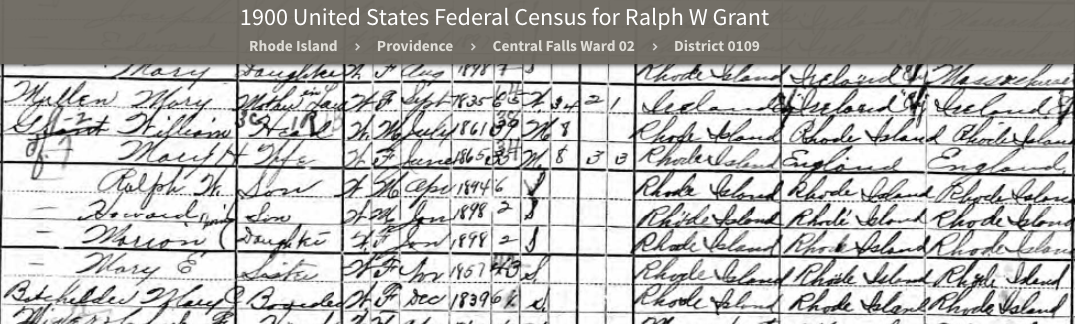 1900 United States Federal Census for Ralph W Grant
Rhode Island › Providence › Central Falls Ward 02 › District 0109
Mary Daughter W F Aug 1898 S Rhode Island Ireland
Mullen Mary Mother in Law W F Sept 1835 W 34 2 1 Ireland Ireland Ireland
Grant William Head W M July 1861 M 8 Rhode Island Rhode Island Rhode Island
Mary H Wife W F June 1865 M 8 3 3 Rhode Island England England
Ralph W. Son W M Apr 1894 6 S Rhode Island Rhode Island Rhode Island
Howard Son W M Jan 1898 2 S Rhode Island Rhode Island Rhode Island
Marion C Daughter W F Jan 1898 2 S Rhode Island Rhode Island Rhode Island
Mary E Sister W F 1857 S Rhode Island Rhode Island Rhode Island
Batchelder Mary Boarder W F Dec 1839 S Rhode Island Rhode Island Rhode Island